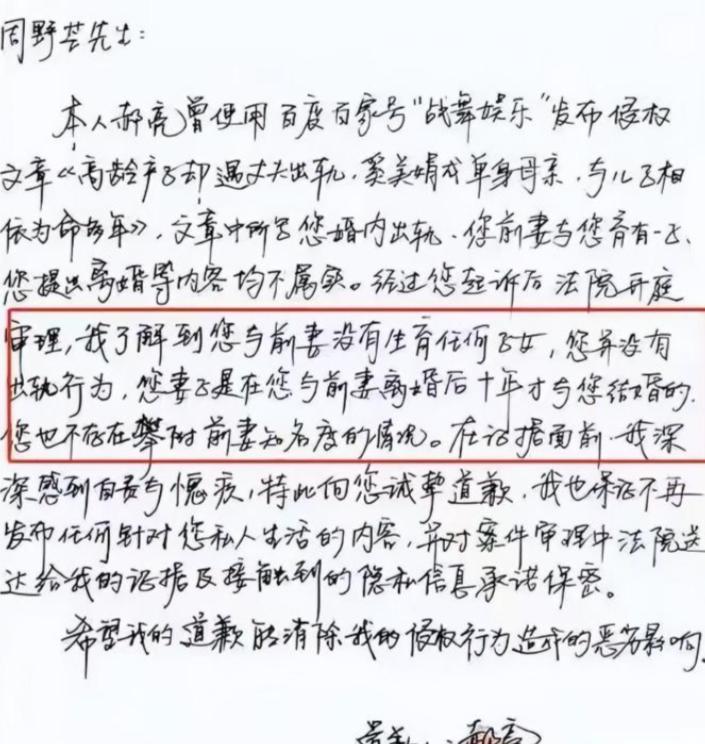 周野芒先生：
本人郝亮曾使用百度百家号"战舞娱乐"发布侵权
文章《高龄产子却遇丈夫出轨，奚美娟成单身母亲，与儿子相
依为命多年》，文章中所写您婚内出轨、您前妻与您育有一子、
您提出离婚等内容均不属实。经过您起诉后法院开庭
审理，我了解到您与前妻没有生育任何子女，您并没有
出轨行为，您妻子是在您与前妻离婚后十年才与您结婚的，
您也不存在攀附前妻知名度的情况。在证据面前，我深
深感到自责与愧疚，特此向您诚挚道歉，我也保证不再
发布任何针对您私人生活的内容，并对案件审理中法院送
达给我的证据及接触到的隐私信息承诺保密。
希望我的道歉能消除我的侵权行为造成的恶劣影响。
郝亮